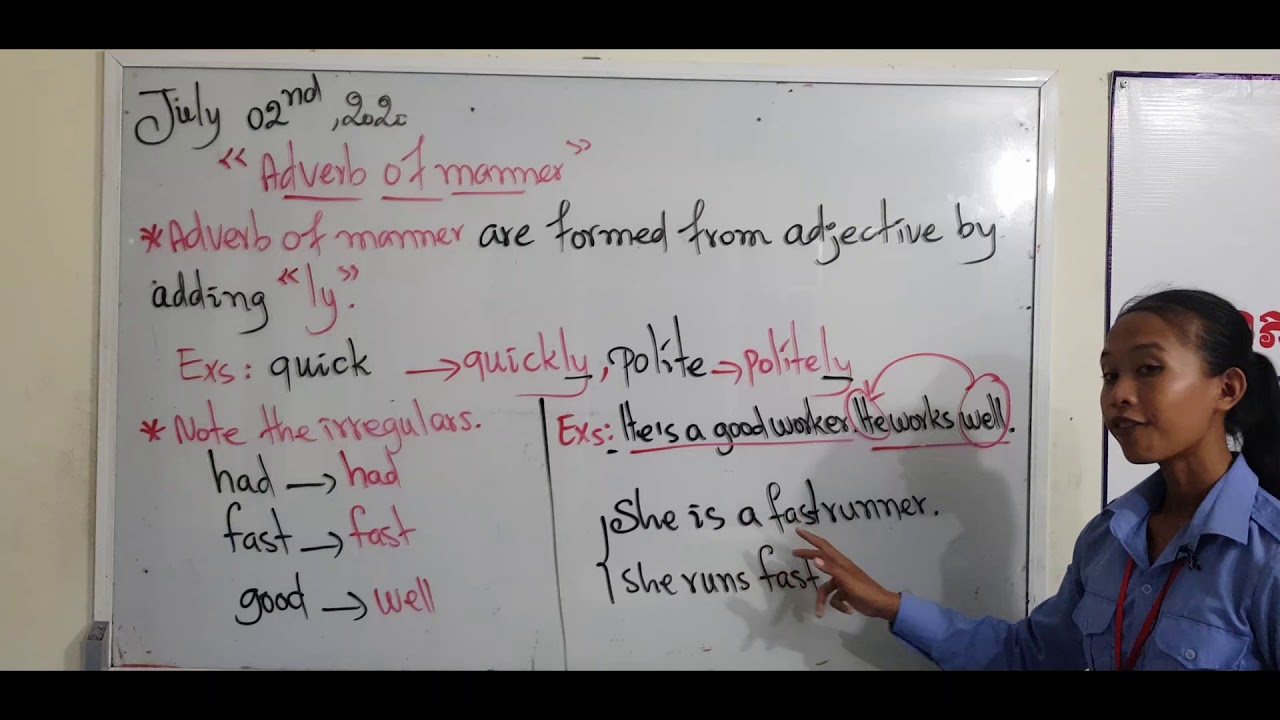 July 02nd, 2020
“Adverb of manner”
*Adverb of manner are formed from adjective by
adding “ly”.
Exs: quick → quickly, polite → politely
* Note the irregulars.
had → had
fast → fast
good → well
Exs: He is a good worker. He works well.
She is a fast runner.
she runs fast